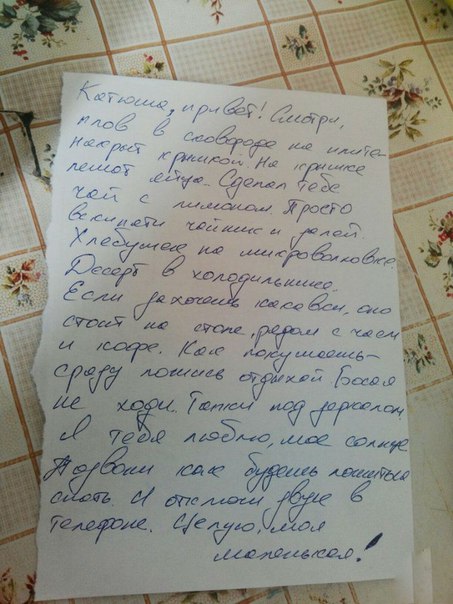 Катюша, привет! Смотри,
плов в сковороде на плите-
накрыт крышкой. На крышке
лежат яйца. Сделал тебе
чай с лимоном. Просто
вскипяти чайник и залей
Хлебушек на микроволновке.
Десерт в холодильнике.
Если захочешь какавки, оно
стоит на столе, рядом с чаем
и кофе. Как покушаешь-
сразу ложись отдыхай. Босая
не ходи. Тапки под зеркалом
Я тебя люблю, мое солнце
Позвони как будешь ложиться
спать. И отключи звук в
телефоне. Целую, моя
маленькая!